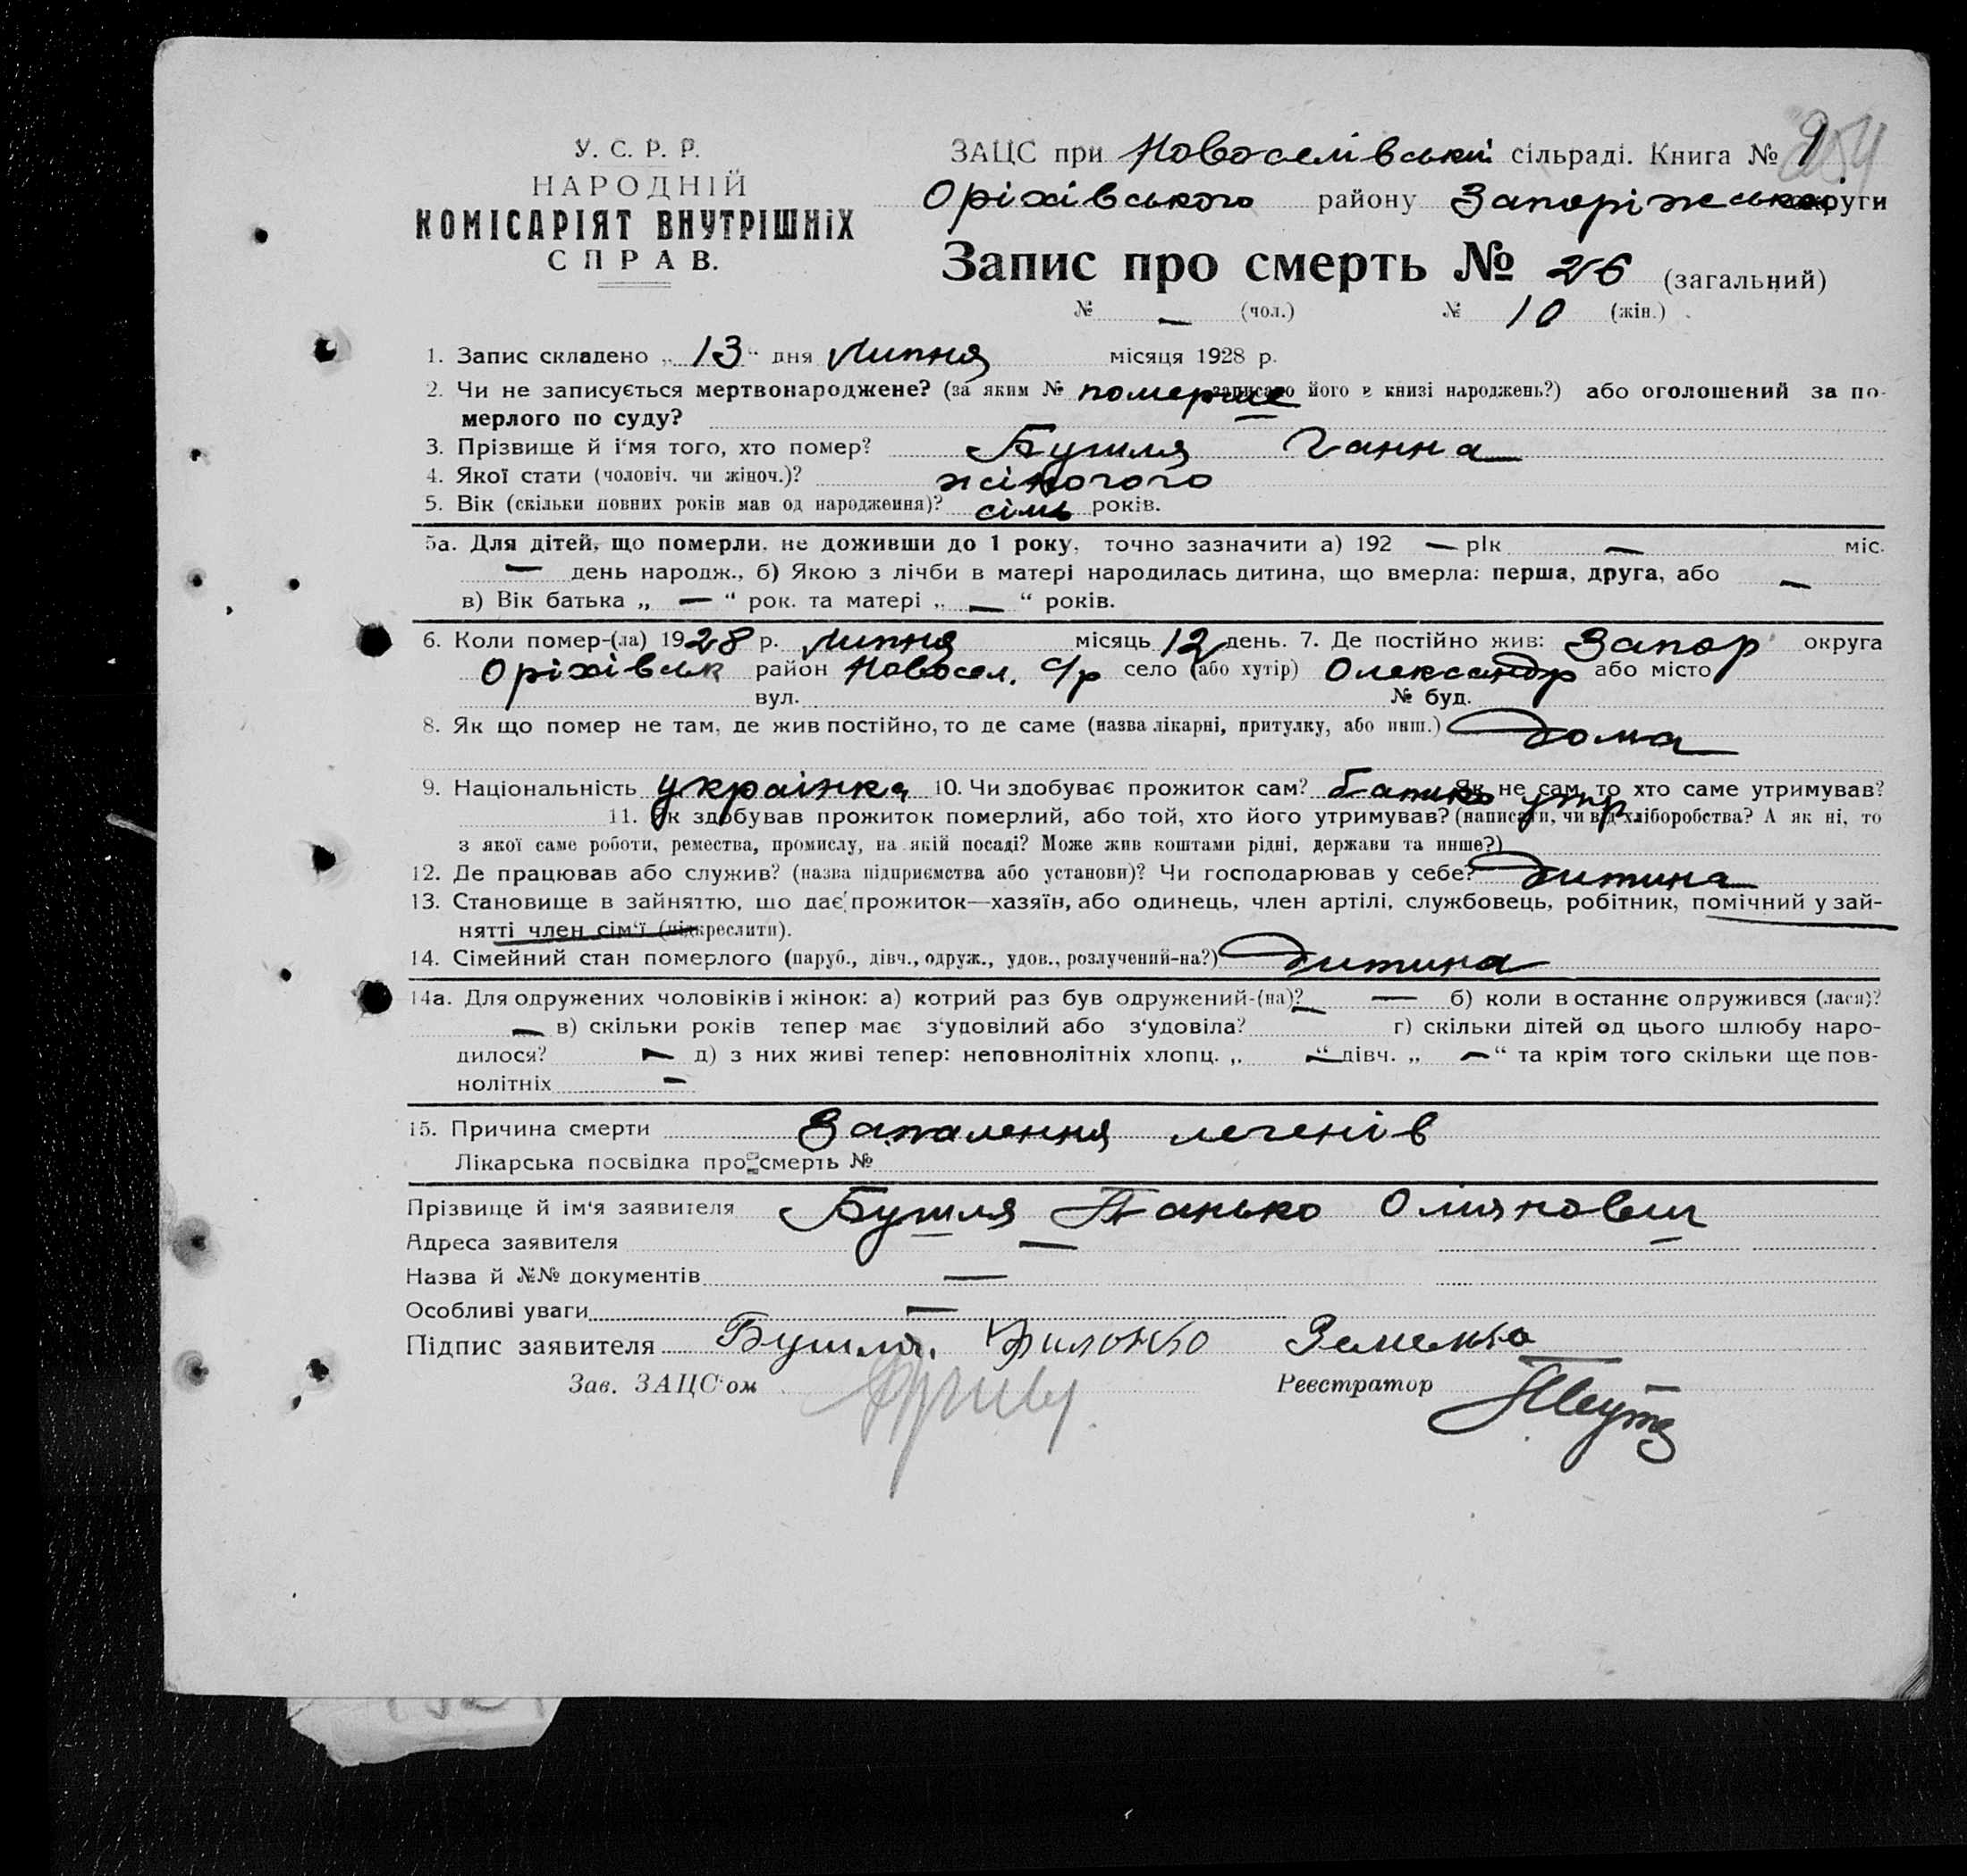 204
У. С. Р. Р.
НАРОДНІЙ
КОМІСАРІЯТ ВНУТРІШНІХ
СПРАВ.
ЗАЦС при Новоселівській сільраді. Книга № 1
Оріхівського району Запоріжської округи
Запис про смерть № 26 (загальний)
№ — (чол.) № 10 (жін.)
1. Запис складено „ 13 “ дня Липня місяця 1928 р.
2. Чи не записується мертвонароджене? (за яким № померше записано його в книзі народжень?) або оголошений за по-
мерлого по суду? —
3. Прізвище й і‘мя того, хто помер? Бушля Ганна
4. Якої стати (чоловіч. чи жіноч.)? жіночого
5. Вік (скільки повних років мав од народження)? сімь років.
5а. Для дітей, що померли, не доживши до 1 року, точно зазначити а) 192 — рік — міс.
— день народж., б) Якою з лічби в матері народилась дитина, що вмерла: перша, друга, або —
в) Вік батька „ — “ рок. та матері „ — “ років.
6. Коли помер-(ла) 1928 р. Липня місяць 12 день. 7. Де постійно жив: Запор округа
Оріхівськ район Новосел. С/р село (або хутір) Олександр або місто
вул. № буд.
8. Як що помер не там, де жив постійно, то де саме (назва лікарні, притулку, або инш.) Дома
9. Національність українка 10. Чи здобуває прожиток сам? батько утр Як не сам, то хто саме утримував?
11. Як здобував прожиток померлий, або той, хто його утримував? (написати, чи від хліборобства? А як ні, то
з якої саме роботи, ремества, промислу, на якій посаді? Може жив коштами рідні, держави та инше?)
12. Де працював або служив? (назва підприємства або установи)? Чи господарював у себе? Дитина
13. Становище в зайняттю, що дає прожиток—хазяїн, або одинець, член артілі, службовець, робітник, помічний у зай-
нятті член сім‘ї (підкреслити).
14. Сімейний стан померлого (паруб., дівч., одруж., удов., розлучений-на?) Дитина
14а. Для одружених чоловіків і жінок: а) котрий раз був одружений-(на)? — б) коли в останнє одружився (лася)?
— в) скільки років тепер має з‘удовілий або з‘удовіла? г) скільки дітей од цього шлюбу наро-
дилося? — д) з них живі тепер: неповнолітніх хлопц. „ — “ дівч. „ — “ та крім того скільки ще пов-
нолітніх —
15. Причина смерти Запалення легенів
Лікарська посвідка про смерть №
Прізвище й ім‘я заявителя Бушля Панько Омянович
Адреса заявителя — —
Назва й №№ документів —
Особливі уваги —
Підпис заявителя Бушля.
Зав. ЗАЦС‘ом Реєстратор